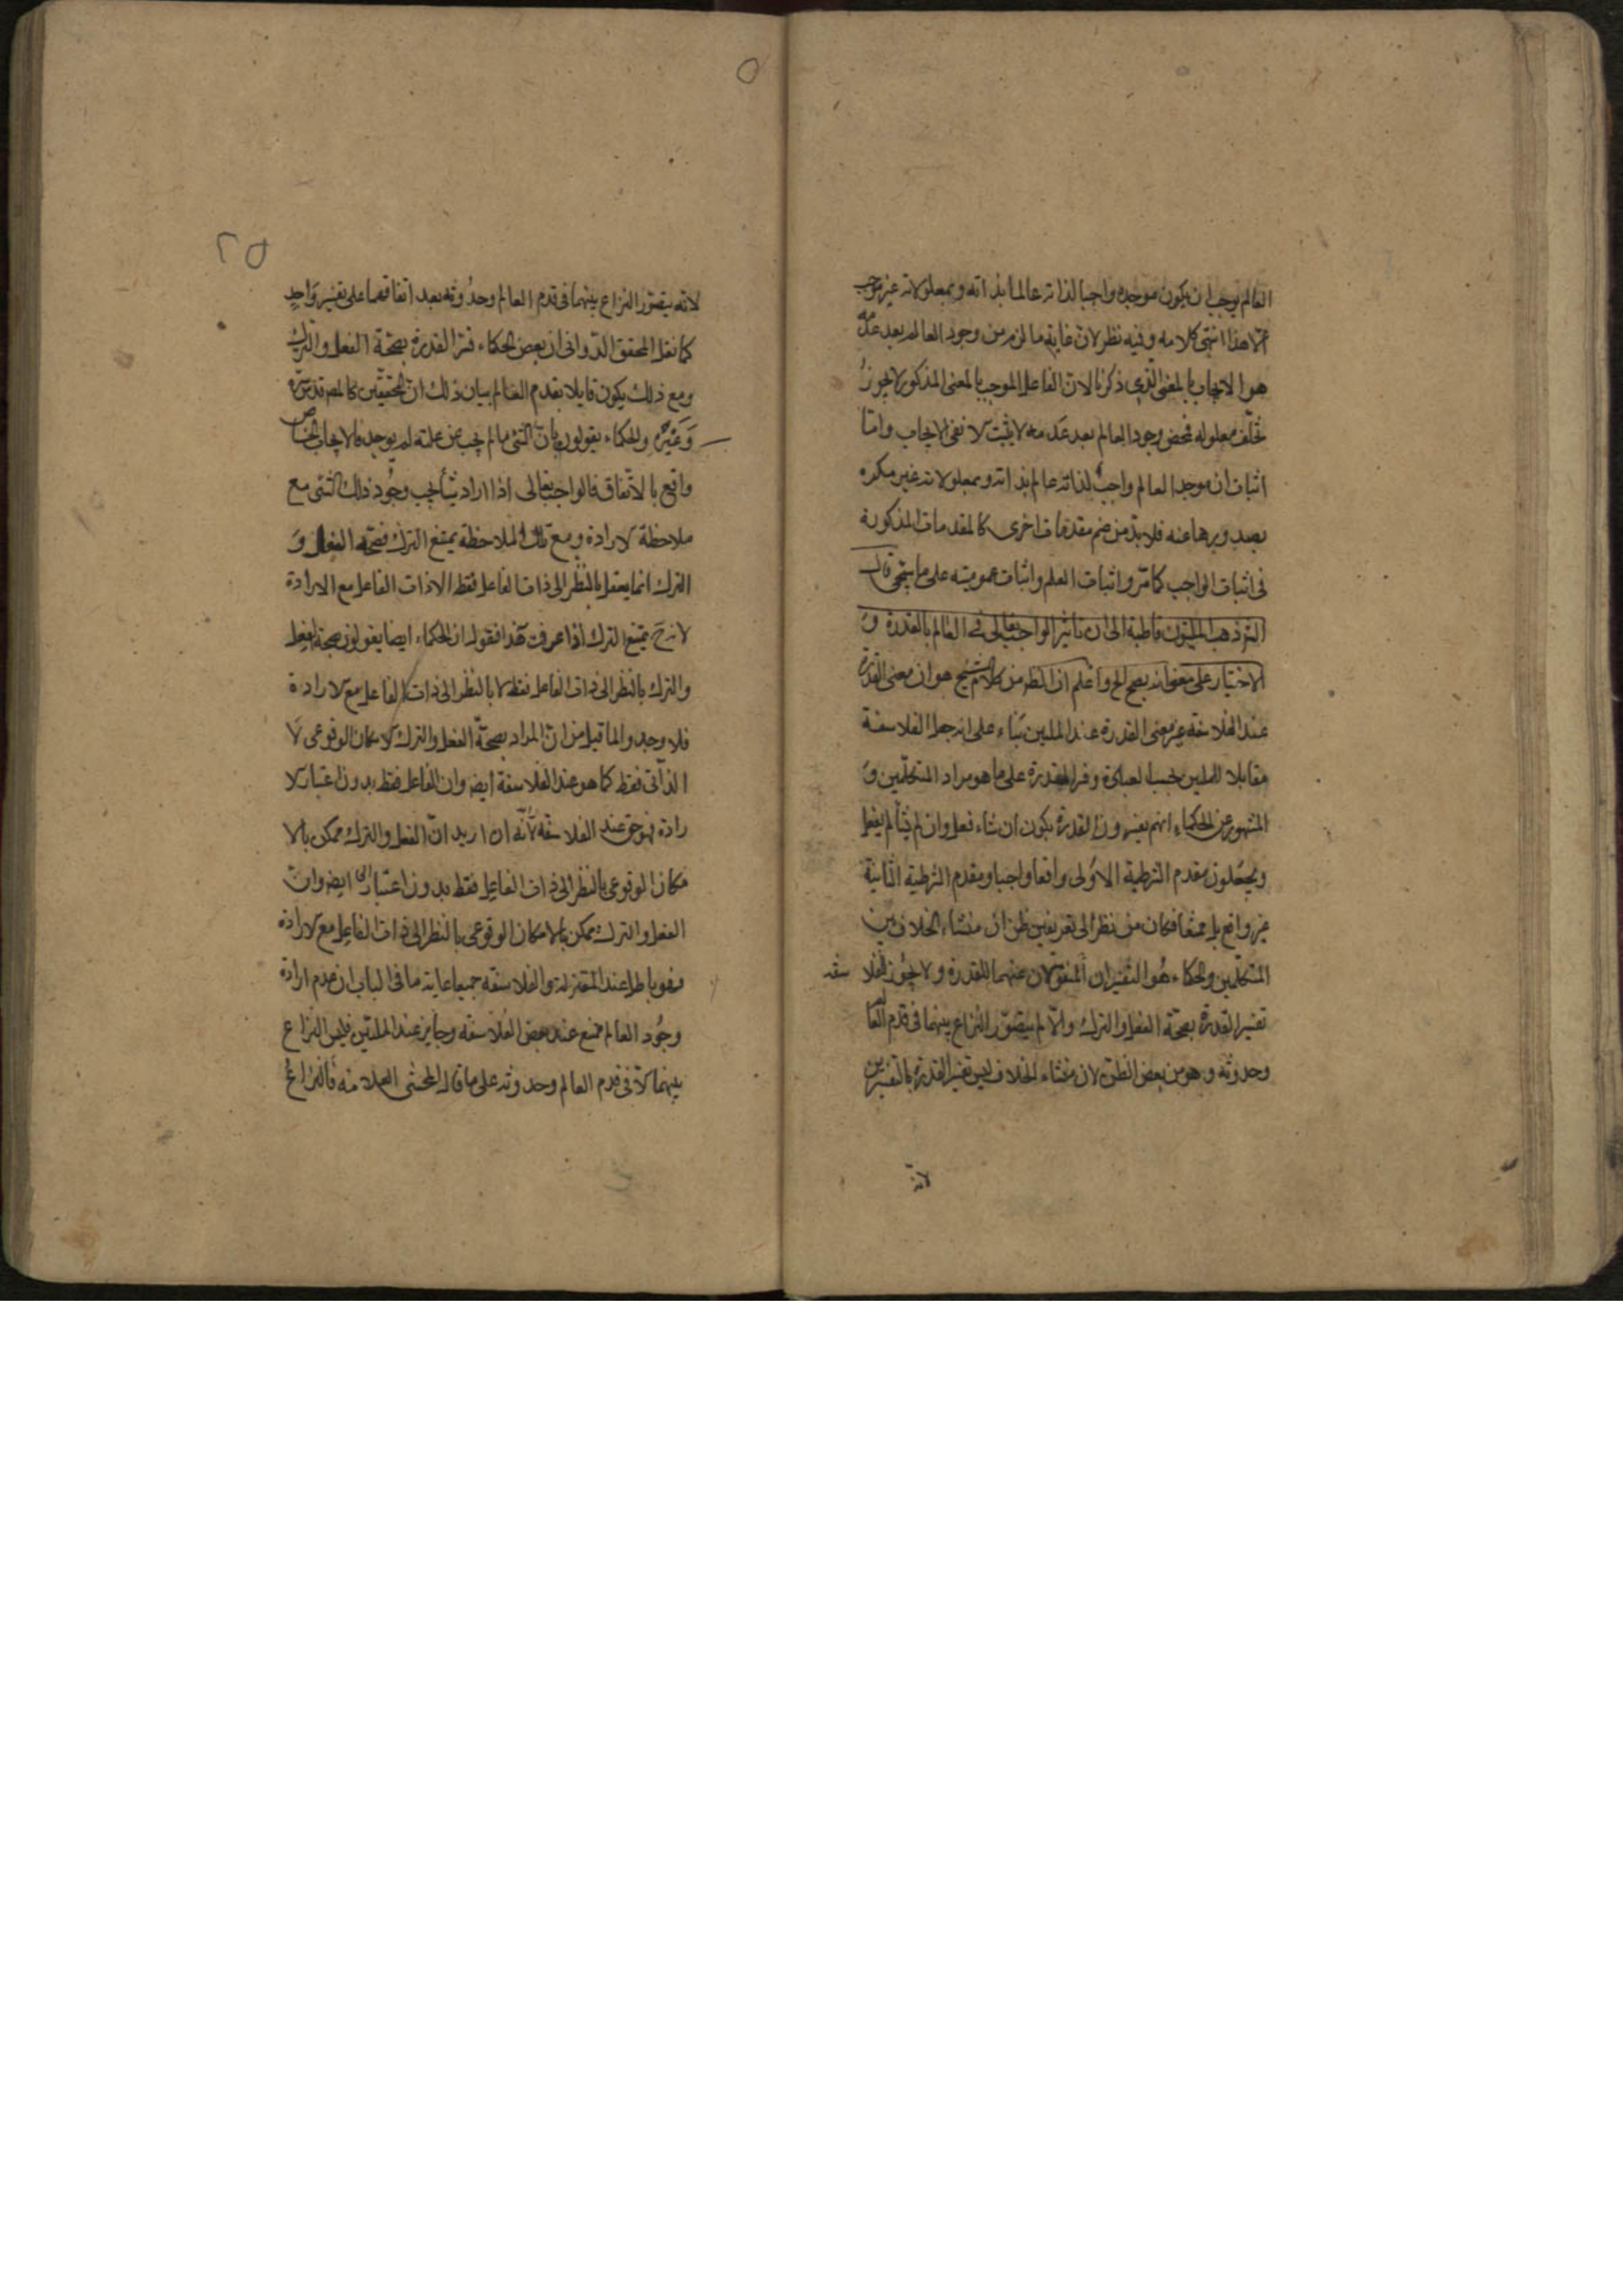 العالم يوجب ان يكون موجده واجبا لذاته عالما بذاته وبمعلولاته غير موجب
هذا انتهى كلامه وفيه نظر لان غاية ما لزم من وجود العالم بعد عدمه
هو الايجاب بالمعنى الذي ذكرنا لان الفاعل الموجب بالمعنى المذكور لا يجوز
تخلف معلوله فمحض وجود العالم بعد عدمه لا يثبت الا نفي الايجاب واما
اثبات ان موجد العالم واجب لذاته عالم بذاته وبمعلولاته غير مكره
بصدورها عنه فلا بد من ضم مقدمات اخرى كالمقدمات المذكورة
في اثبات الواجب كما مر واثبات العلم واثبات عموميته على ما سيجئ قال
ذهب المليون قاطبة الى ان تاثير الواجب تعالى في العالم بالقدرة و
الاختيار على معنى انه يصح الخ واعلم ان الظ من كلام الشيخ هو ان معنى القدرة
عند الفلاسفة غير معنى القدرة عند المليين بناء على انه جعل الفلاسفة
مقابلا للمليين بحسب العبارة وفسر القدرة على ما هو مراد المتكلمين و
المشهور عن الحكماء انهم يفسرون القدرة بكون ان شاء فعل وان لم يشأ لم يفعل
ويجعلون مقدم الشرطية الاولى واقعا واجبا ومقدم الشرطية الثانية
غير واقع بل ممتنعا فكان من نظر الى تعريفين ظن ان منشاء الخلاف بين
المتكلمين والحكماء هو التفسيران المنقولان عنهما للقدرة ولا يجوز الفلاسفة
تفسير القدرة بصحة الفعل والترك والا لم يتصور النزاع بينهما في قدم العالم
وحدوثه وهو من بعض الظن لان منشاء الخلاف ليس تفسير القدرة بالتفسيرين
لانه
٥
٢٥
لانه يتصور النزاع بينهما في قدم العالم وحدوثه بعد اتفاقهما على تفسير واحد
كما نقل المحقق الدواني ان بعض الحكماء فسر القدرة بصحة الفعل والترك
ومع ذلك يكون قايلا بقدم العالم بيان ذلك ان المحققين كالمصر قدس سره
وغيره والحكماء يقولون بان الشئ ما لم يجب عن علته لم يوجد فالايجاب الخاص
واقع بالاتفاق فالواجب تعالى اذا اراد شيئا يجب وجود ذلك الشئ مع
ملاحظة الارادة ومع تلك الملاحظة يمتنع الترك فصحة الفعل و
الترك انما يعقل بالنظر الى ذات الفاعل فقط لا ذات الفاعل مع الارادة
لانه ح يمتنع الترك اذا عرفت هذا فنقول ان الحكماء ايضا يقولون بصحة الفعل
والترك بالنظر الى ذات الفاعل فقط لا بالنظر الى ذات الفاعل مع الارادة
فلا وجه لما قيل من ان المراد بصحة الفعل والترك الامكان الوقوعي لا
الذاتي فقط كما هو عند الفلاسفة ايض وان الفاعل فقط بدون اعتبار الا
رادة فهو حق عند الفلاسفة لانه ان اريد ان الفعل والترك ممكن بالا
مكان الوقوعي بالنظر الى ذات الفاعل فقط بدون اعتبار ايض وان
الفعل والترك ممكن بالامكان الوقوعي بالنظر الى ذات الفاعل مع الارادة
فهو باطل عند المعتزلة والفلاسفة جميعا غاية ما في الباب ان عدم ارادة
وجود العالم ممتنع عند بعض الفلاسفة وجايز عند المليين فليس النزاع
بينهما الا في قدم العالم وحدوثه على ما قال المحشي العلامة فالنزاع